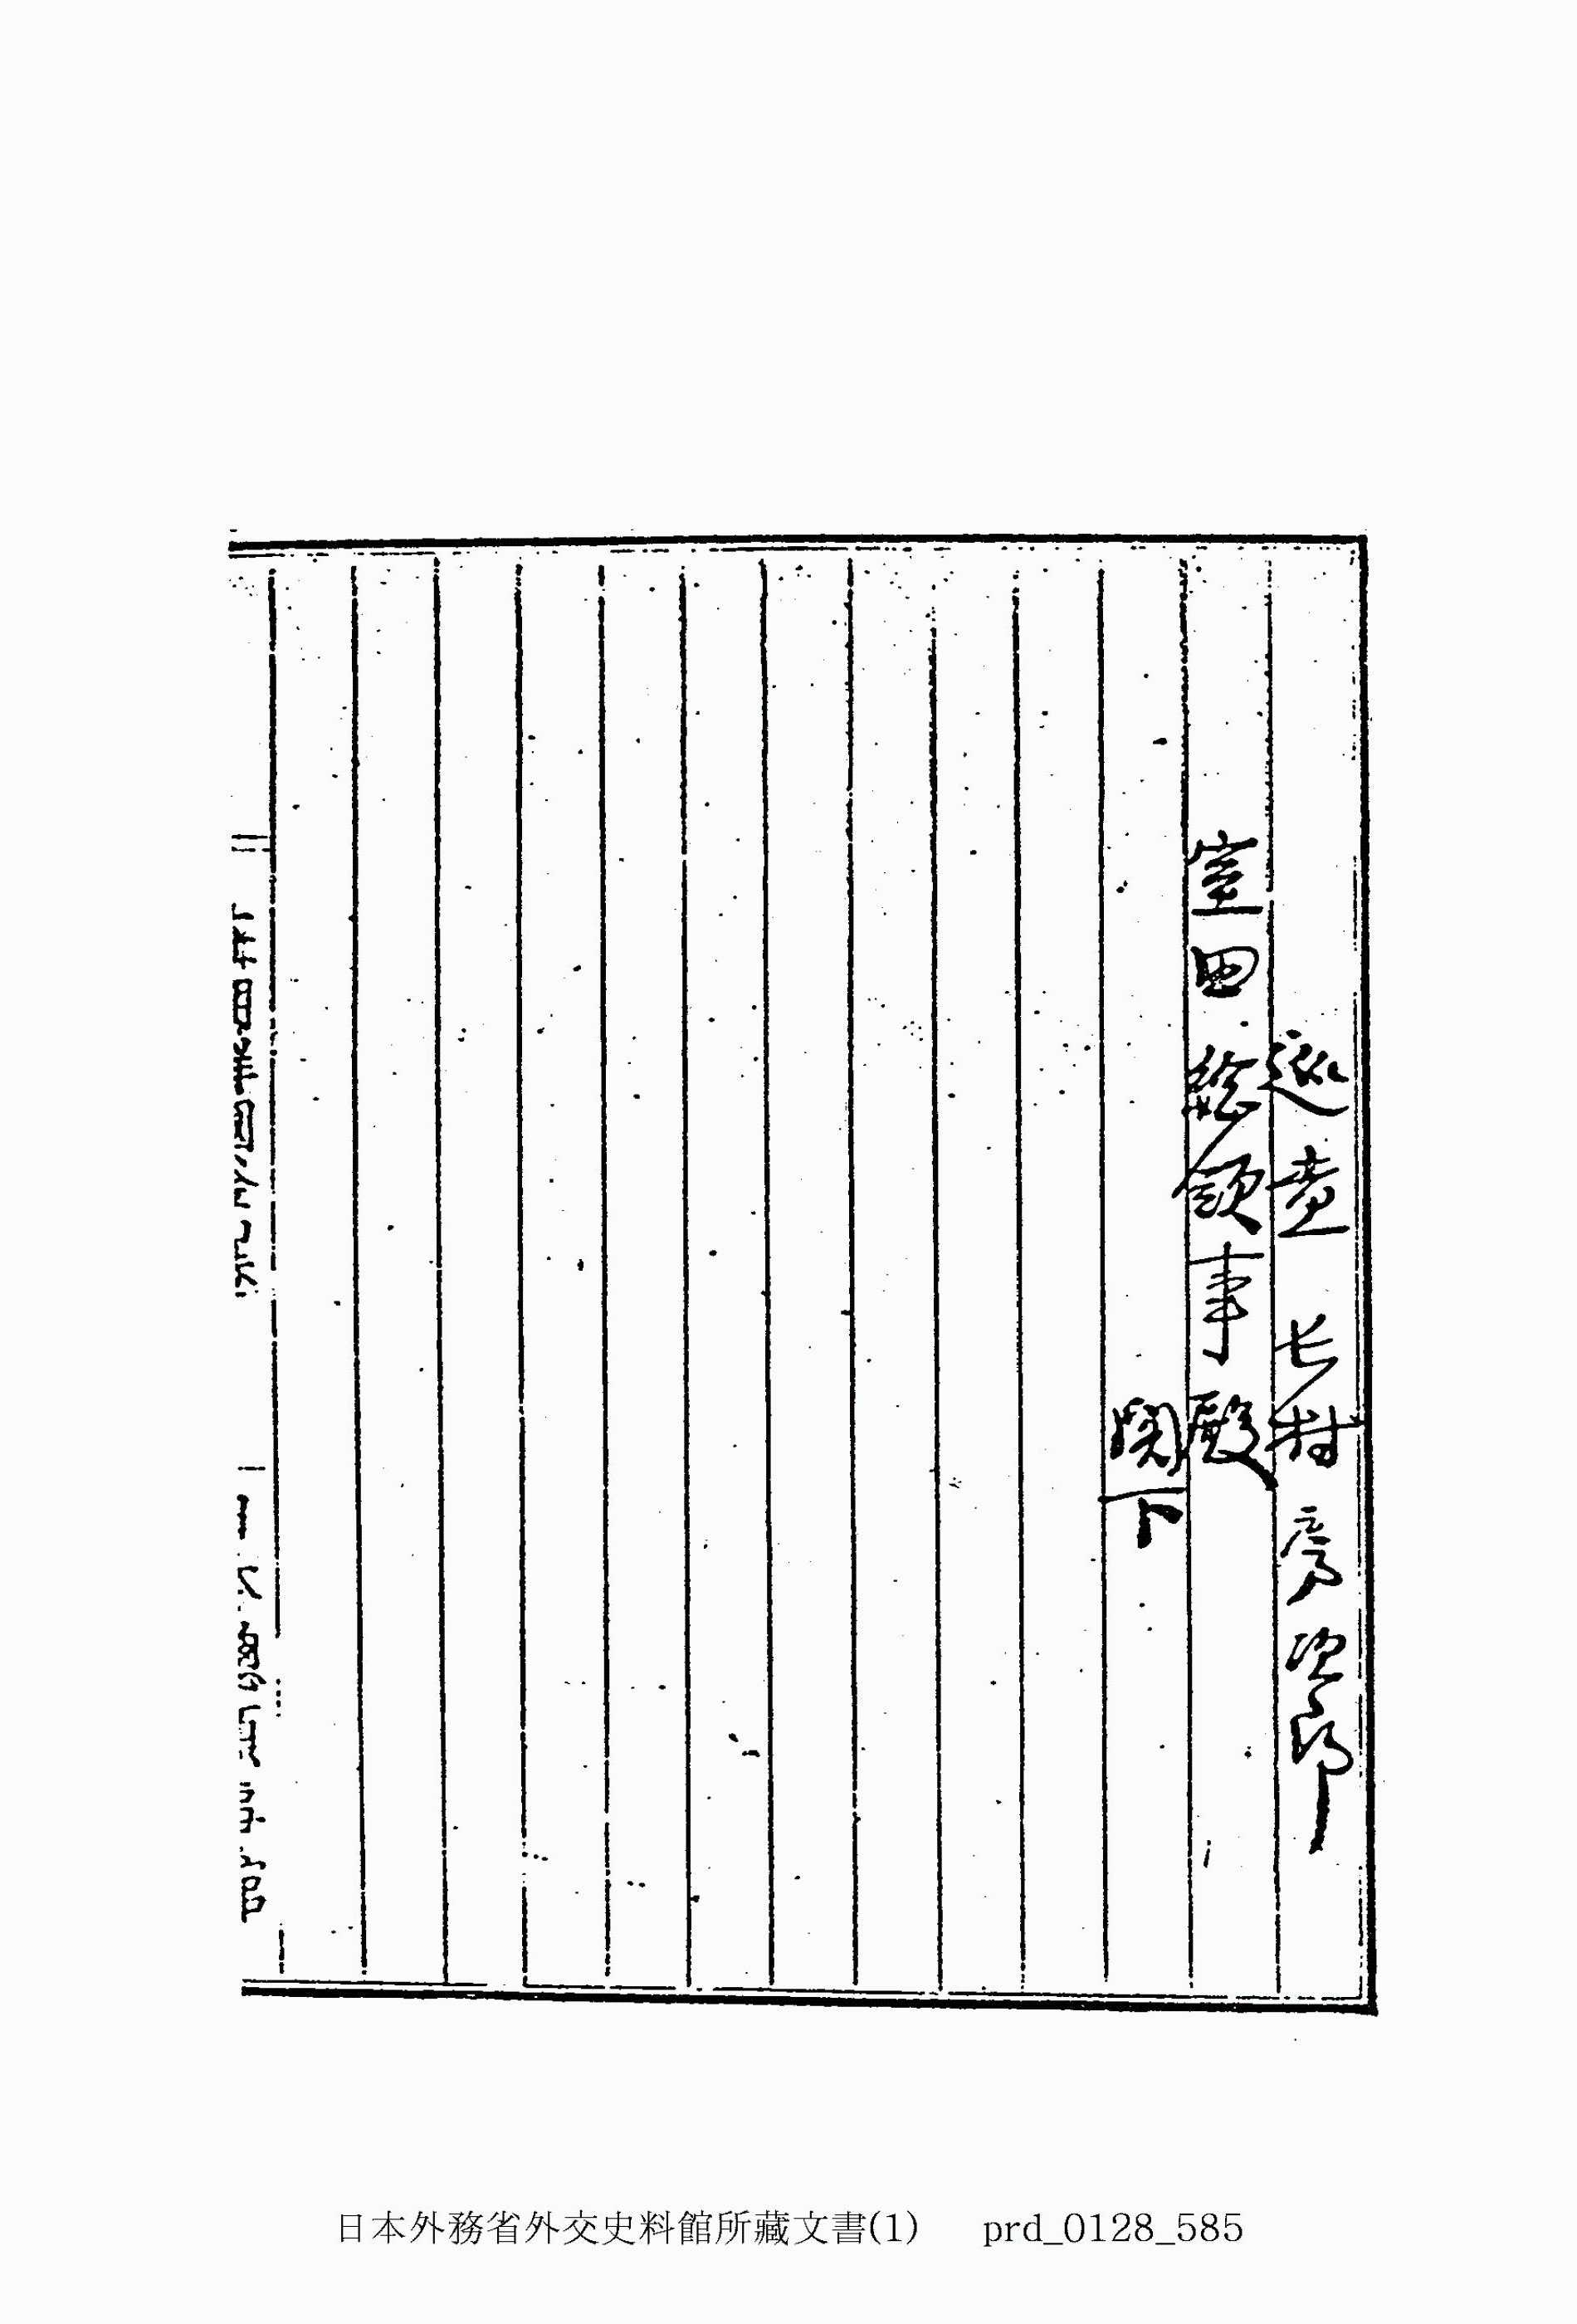 巡査 長村彦次郎
室田総領事殿
閣下
日本外務省外交史料館所藏文書(1) prd_0128_585